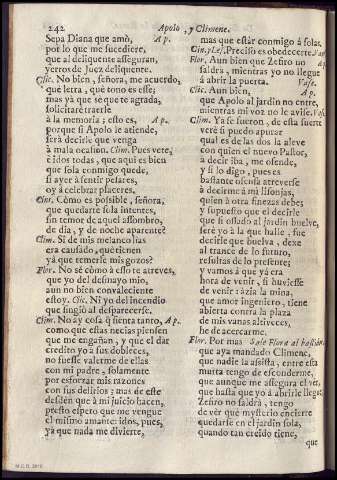 242 Apolo, y Climene.
Sepa Diana que amò, Ap.
por lo que me sucediere,
que al delinquente asseguran,
yerros de Juez delinquente.
Clic. No bien, señora, me acuerdo,
que letra, què tono es esse;
mas yà que sè que te agrada,
solicitarè traerle
à la memoria; esto es, Ap.
porque si Apolo le atiende,
serà decirle que venga
à mala ocasion. Clim. Pues vete,
è idos todas, que aqui es bien
que sola conmigo quede,
si ayer à sentir pesares,
oy à celebrar placeres.
Cint. Còmo es possible, señora,
que quedarte sola intentes,
sin temor de aquel assombro,
de dia, y de noche aparente?
Clim. Si de mis melancolias
era causado, què tienen
yà que temerse mis gozos?
Flor. No sè còmo à esso te atreves,
que yo del desmayo mio,
aun no bien convaleciente
estoy. Clic. Ni yo del incendio
que fingiò al desparecerse.
Clim. No ay cosa que sienta tanto, Ap.
como que estas necias piensen
que me engañan, y que el dar
credito yo à sus dobleces,
no fuesse valerme de ellas
con mi padre, solamente
por esforzar mis razones
con sus delirios; mas de este
desdèn que à mi juicio hacen,
presto espero que me vengue
el mismo amante: idos, pues,
yà que nada me divierte,
mas que estàr conmigo à solas.
Cin. y Les. Preciso es obedecerte. Vanse.
Flor. Aun bien que Zefiro no Ap.
saldrà, mientras yo no llegue
à abrir la puerta. Vase.
Clic. Aun bien, Ap.
que Apolo al jardin no entre,
mientras mi voz no le avise. Vase.
Clim. Ya se fueron, de esta suerte
verè si puedo apurar
qual es de las dos la aleve
con quien el nuevo Pastor,
à decir iba, me ofende,
y si lo digo, pues es
bastante ofensa atreverse
à decirme à mi lisonjas,
quien à otra finezas debe;
y supuesto que el decirle
que si ossado al jardin buelve,
serè yo à la que halle, fue
decirle que buelva, dexe
al trance de lo futuro,
resultas de lo presente;
y vamos à que yà era
hora de venir, si huviesse
de venir: àzia la mina,
que amor ingeniero, tiene
abierta contra la plaza
de mis vanas altiveces,
he de acercarme.
Flor. Por mas Sale Flora al bastidor.
que aya mandado Climene,
que nadie la assista, entre esta
murta tengo de esconderme,
que aunque me assegura el ver,
que hasta que yo à abrirle llegue,
Zefiro no saldrà, tengo
de vèr què mysterio encierre
quedarse en el jardin sola,
quando tan creido tiene,
que